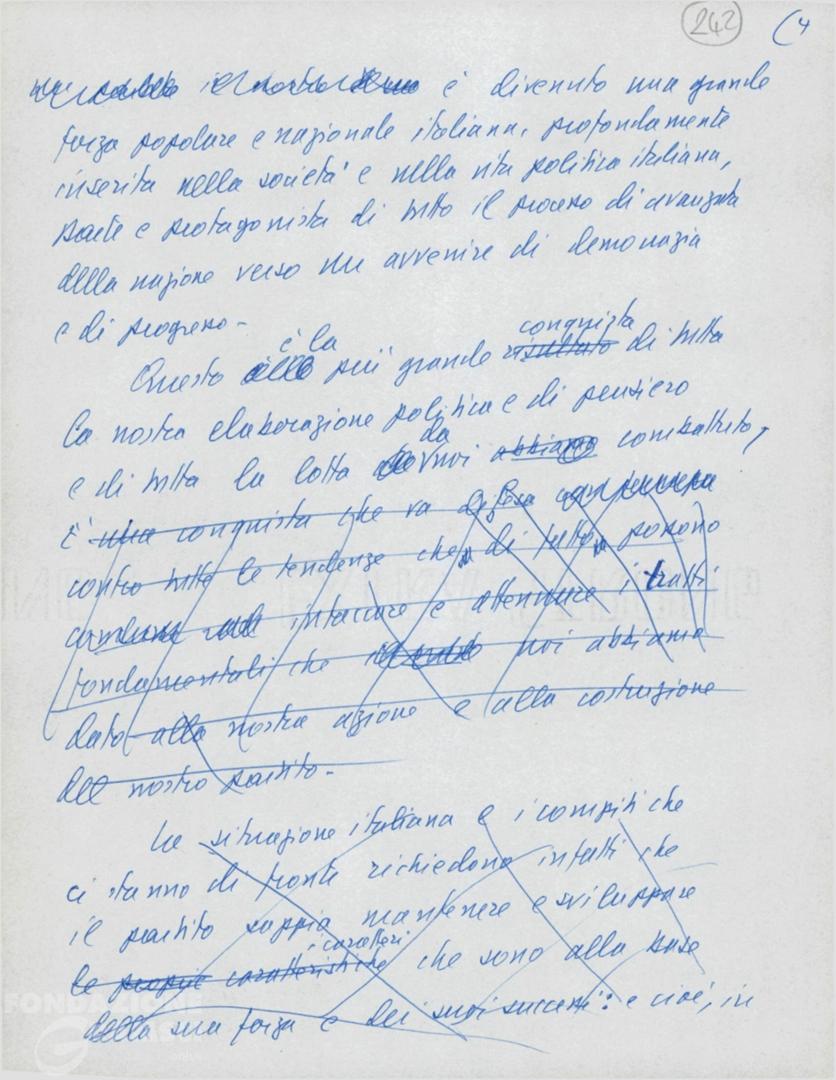 242 (4
il nostro è divenuto una grande
forza popolare e nazionale italiana, profondamente
inserita nella società e nella vita politica italiana,
parte e protagonista di tutto il processo di avanzata
della nazione verso un avvenire di democrazia
e di progresso -
è la conquista
Questo più grande risultato di tutta
la nostra elaborazione politica e di pensiero
da
e di tutta la lotta noi abbiamo combattuto,
E' una conquista che va difesa
contro tutte le tendenze che, di fatto, possono
intaccare e attenuare i tratti
fondamentali che noi abbiamo
dato alla nostra azione e alla costruzione
del nostro partito -
La situazione italiana e i compiti che
ci stanno di fronte richiedono infatti che
il partito sappia mantenere e sviluppare
i caratteri
le proprie caratteristiche che sono alla base
della sua forza e dei suoi successi: e cioè, in
FONDAZIONE